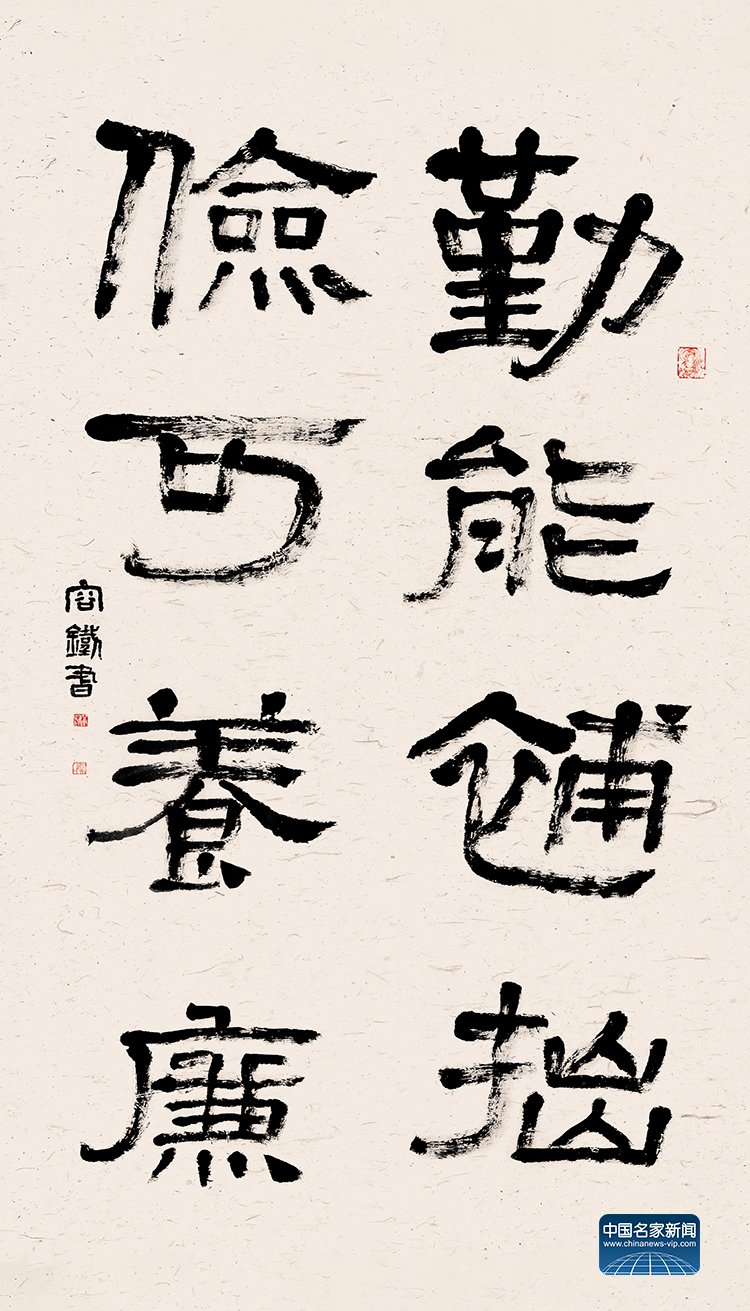 勤能補拙
儉可養廉
容鐵書
中国名家新闻
www.chinanews-vip.com